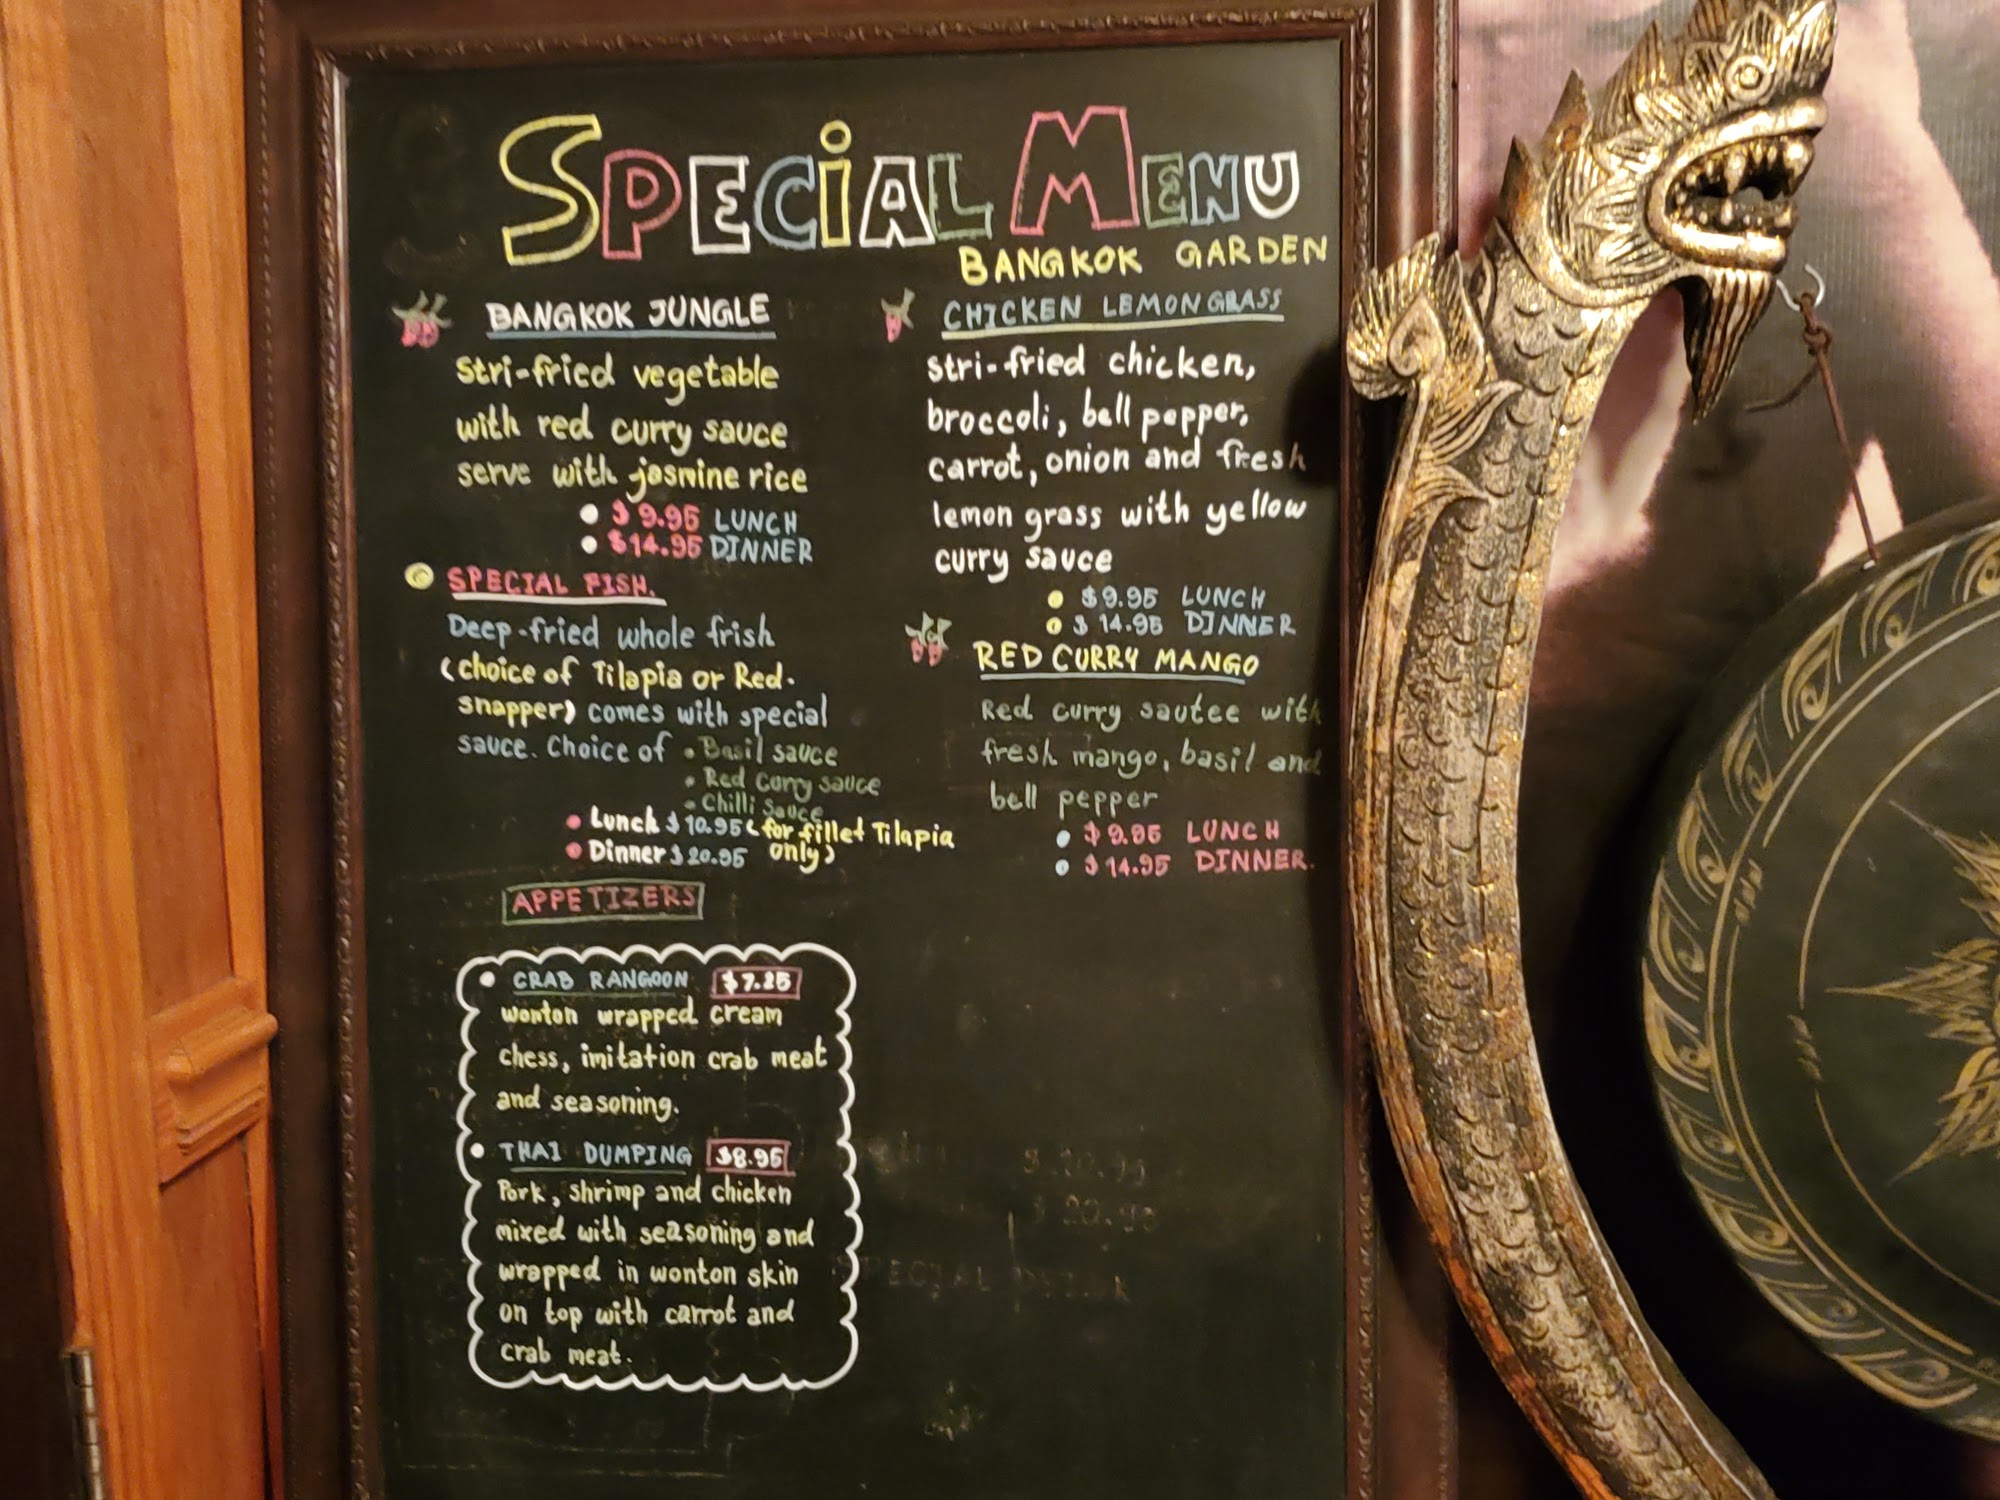 SPECIAL MENU
BANGKOK GARDEN
BANGKOK JUNGLE
Stri-fried vegetable
with red curry sauce
serve with jasmine rice
$9.95 LUNCH
$14.95 DINNER
SPECIAL FISH.
Deep-fried whole frish
(choice of Tilapia or Red.
snapper) comes with special
sauce. Choice of • Basil sauce
• Red Curry sauce
• Chilli Sauce
• Lunch $10.95 (for fillet Tilapia
• Dinner $20.95 only)
APPETIZERS
• CRAB RANGOON $7.25
wonton wrapped cream
chess, imitation crab meat
and seasoning.
• THAI DUMPING $8.95
Pork, shrimp and chicken
mixed with seasoning and
wrapped in wonton skin
on top with carrot and
crab meat.
CHICKEN LEMON GRASS
Stri-fried chicken,
broccoli, bell pepper,
carrot, onion and fresh
lemon grass with yellow
curry sauce
$9.95 LUNCH
$14.95 DINNER
RED CURRY MANGO
Red curry sautee with
fresh mango, basil and
bell pepper
$9.95 LUNCH
$14.95 DINNER.